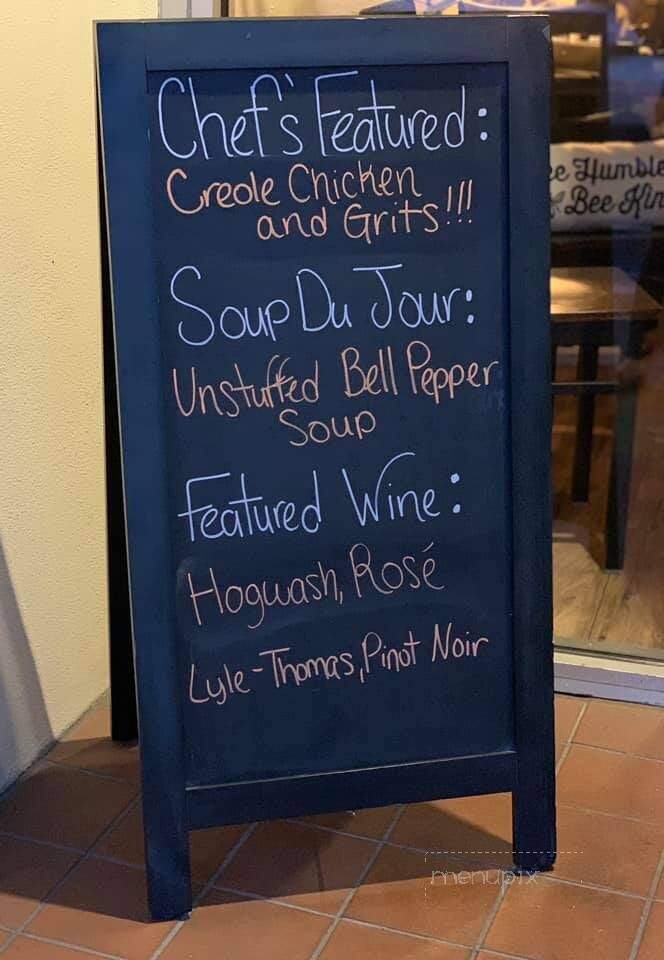 Chef's Featured:
Creole Chicken
and Grits!!!
Soup Du Jour:
Unstuffed Bell Pepper
Soup
Featured Wine:
Hogwash, Rosé
Lyle-Thomas, Pinot Noir
ee Humble
Bee Kin
menupix